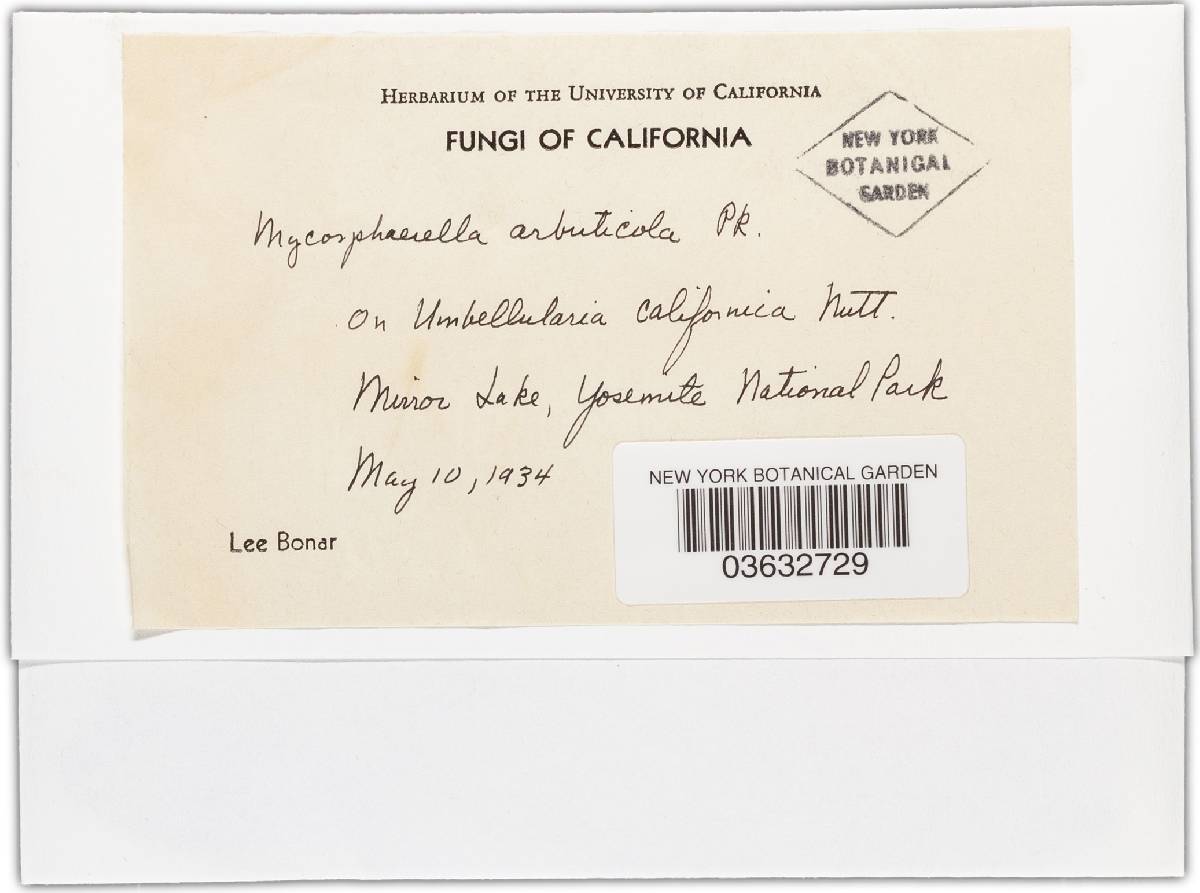 HERBARIUM OF THE UNIVERSITY OF CALIFORNIA
FUNGI OF CALIFORNIA
NEW YORK
BOTANICAL
GARDEN
Mycosphaerella arbuticola Pk.
On Umbellularia californica Nutt.
Mirror Lake, Yosemite National Park
May 10, 1934
Lee Bonar
NEW YORK BOTANICAL GARDEN
03632729